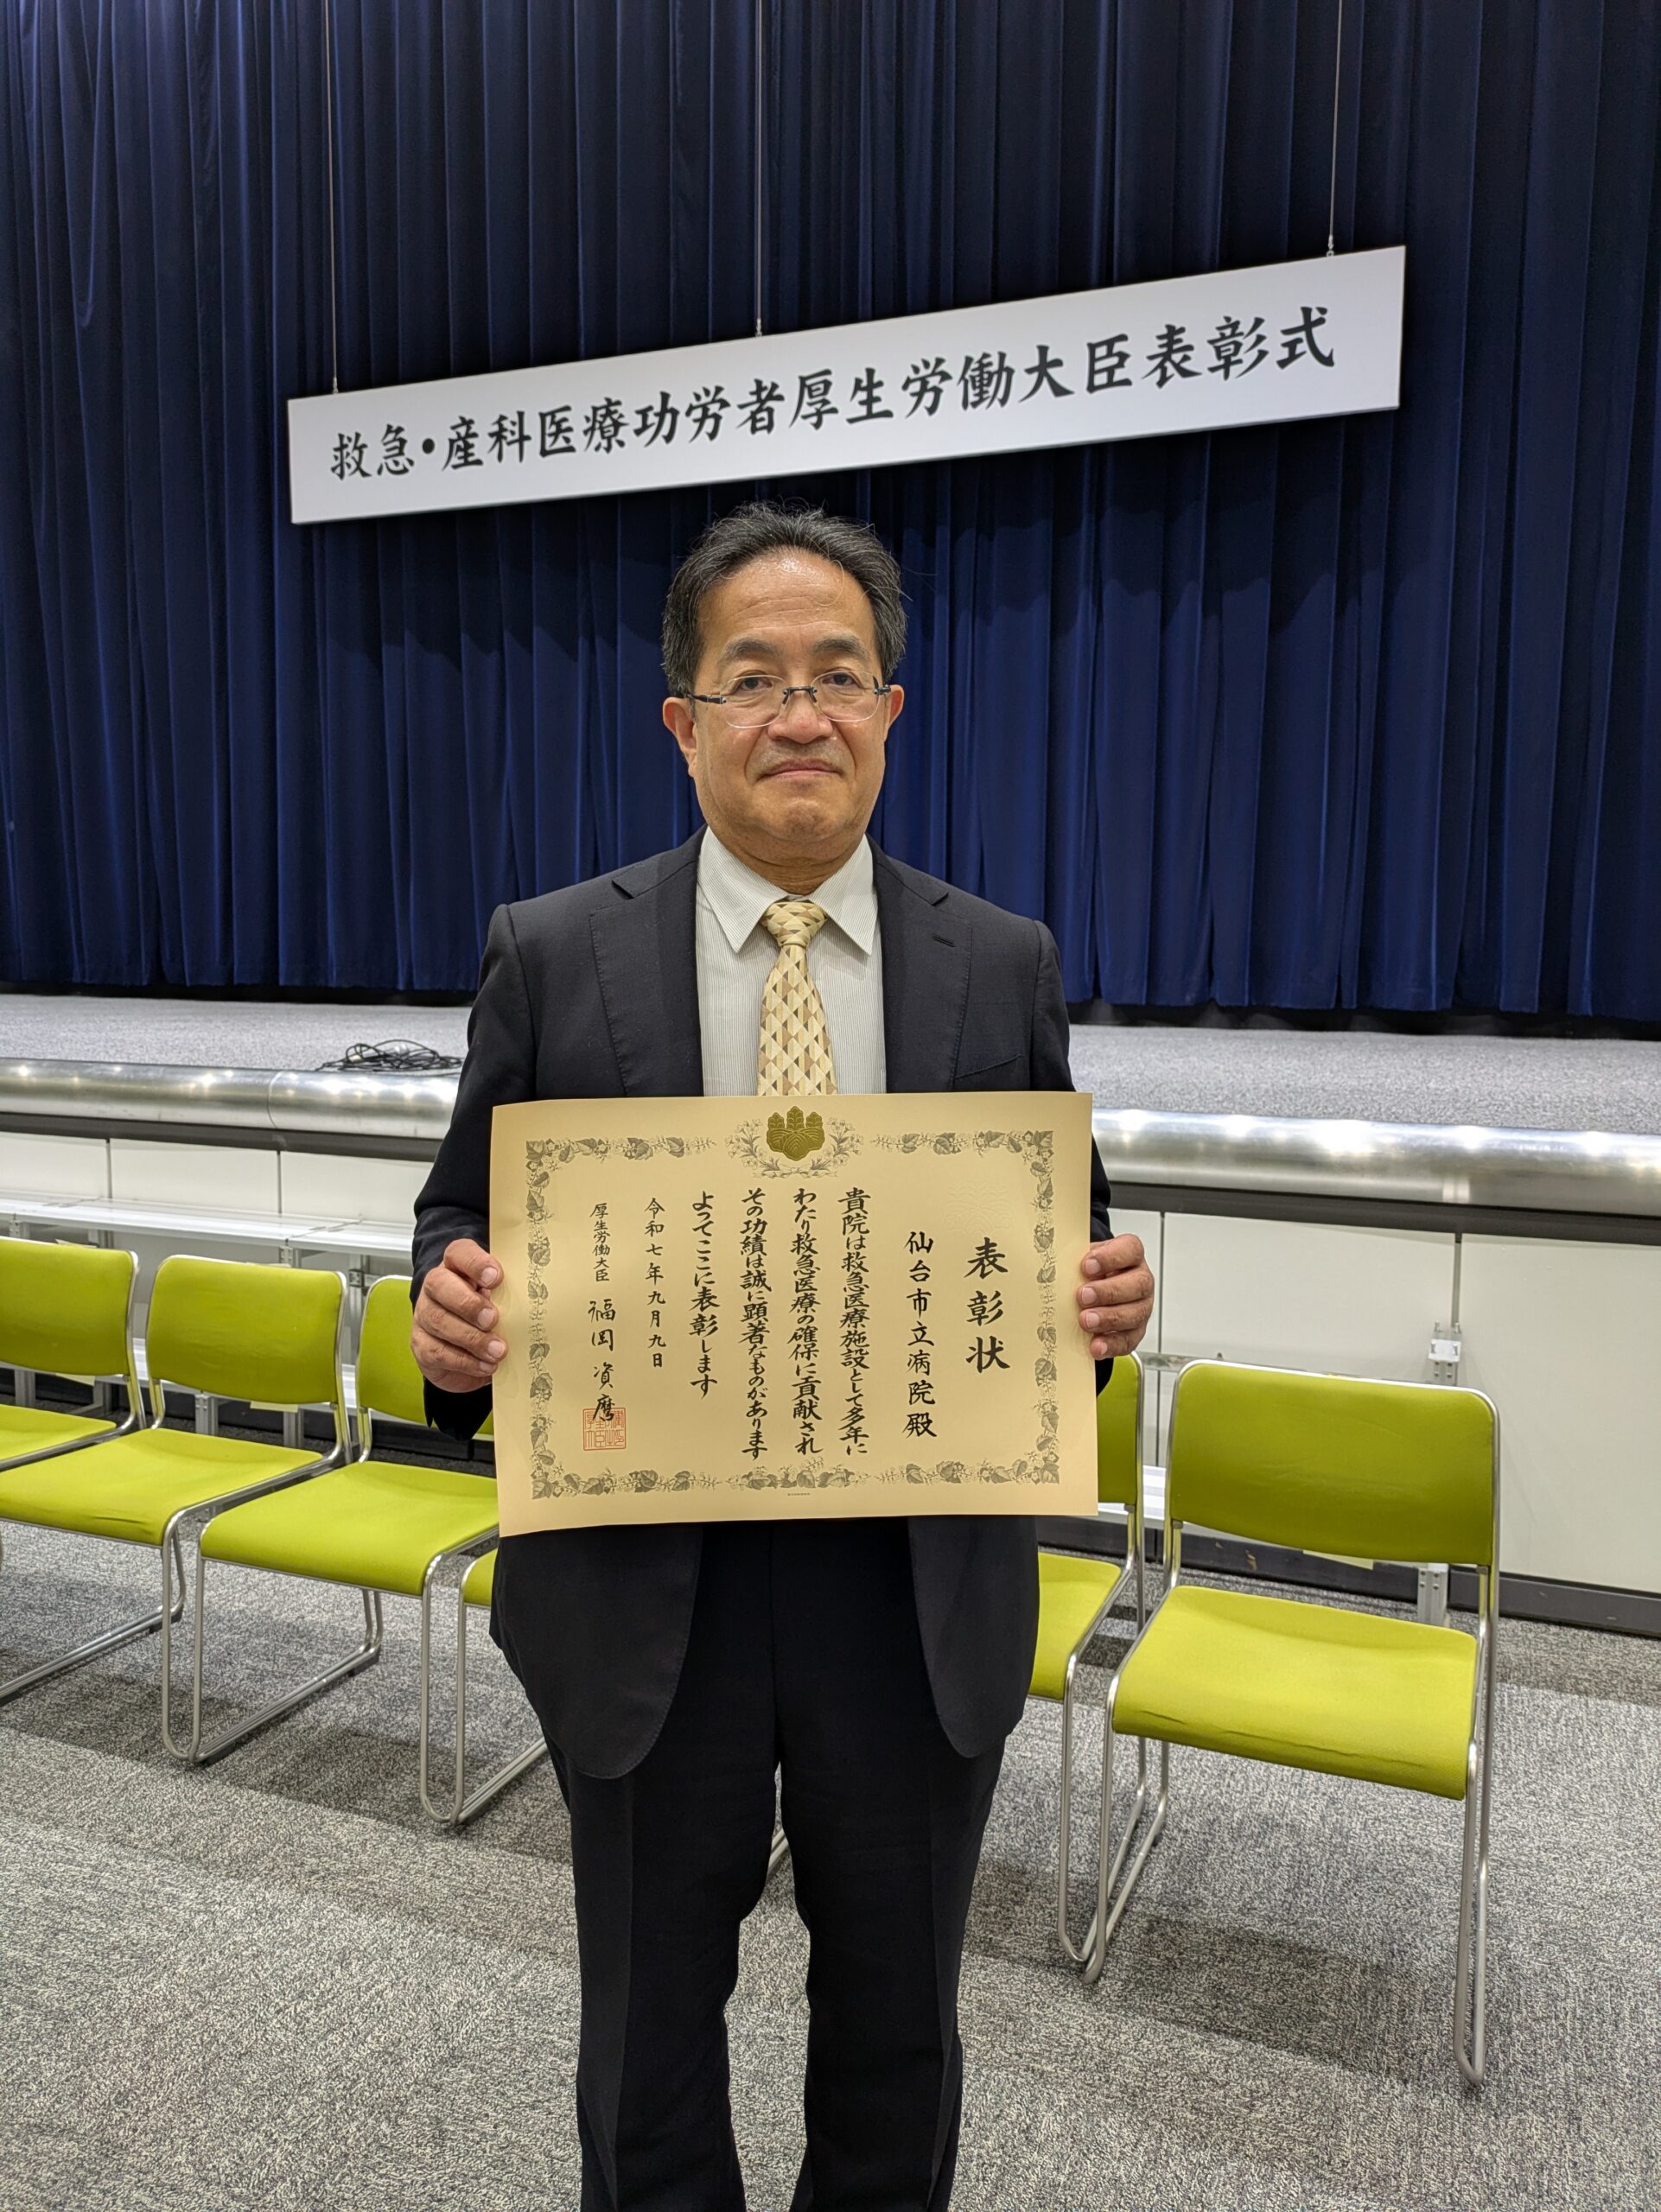 救急・産科医療功労者厚生労働大臣表彰式
表彰状
仙台市立病院殿
貴院は救急医療施設として多年に
わたり救急医療の確保に貢献され
その功績は誠に顕著なものがあります
よってここに表彰します
令和七年九月九日
厚生労働大臣 福岡資麿